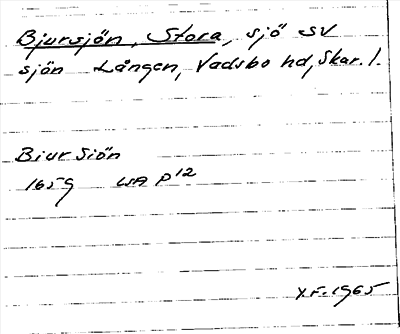 Bjursjön, Stora, sjö SV
sjön Lången, Vadsbo hd, Skar. l.
Biur Siön
1659 LSA P12
Y.F. 1965